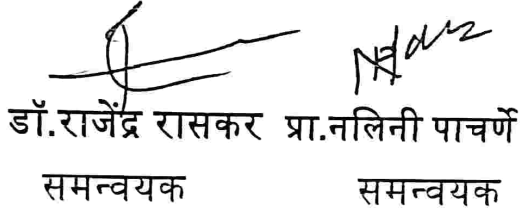 डॉ.राजेंद्र रासकर प्रा.नलिनी पाचर्णे
समन्वयक समन्वयक